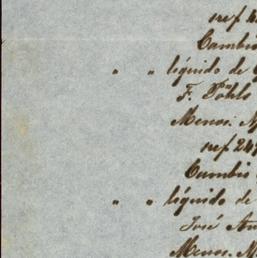 ref 4
Cambio
" " líquido de
F. Pohls
Menos:
ref 24
Cambio
" " líquido de
José An
Menos. M